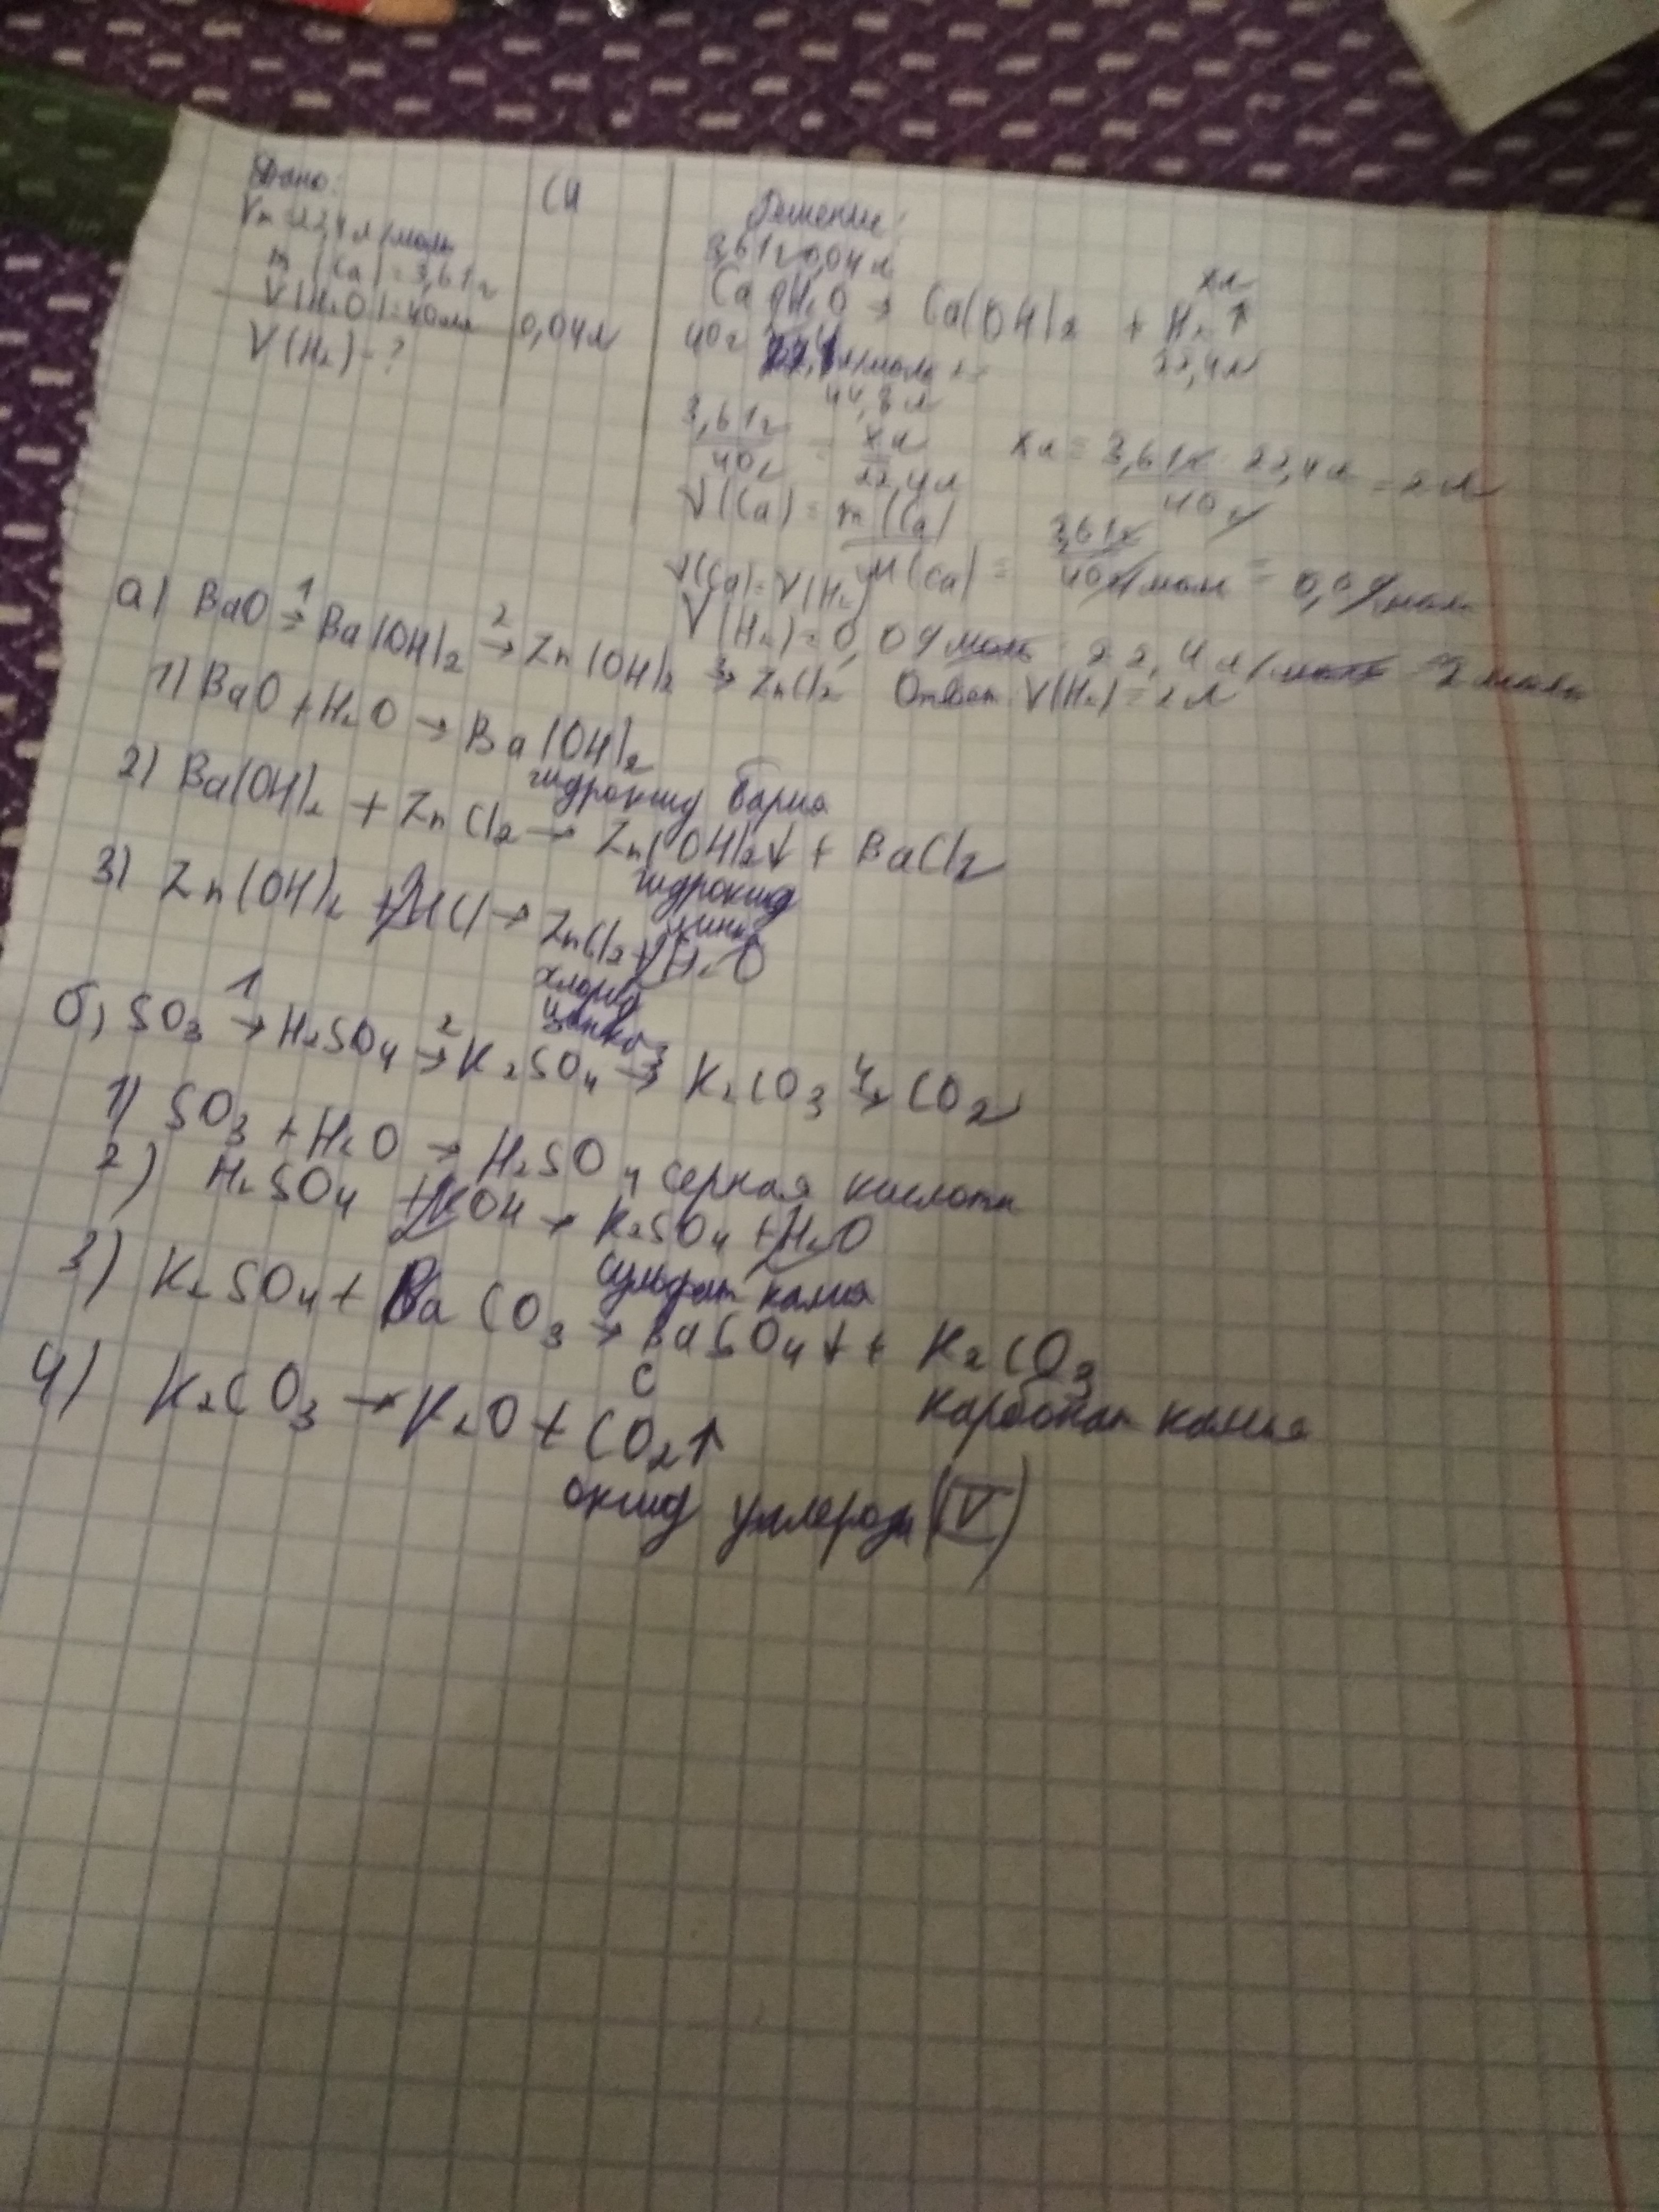 Дано:
Vm = 22,4 л/моль
m (Ca) = 3,61 г
V(H₂O) = 40 мл
V(H₂) - ?
СИ
0,04 л
Решение:
3,61 г 0,04 л х л
Ca H₂O → Ca(OH)₂ + H₂ ↑
40 г л/моль 22,4 л
44,8 л
3,61 г / 40 г = х л / 22,4 л х л = 3,61 г · 22,4 л / 40 г = 2 л
V(Ca) = m(Ca) / M(Ca) = 3,61 г / 40 г/моль = 0,09 моль
V(Ca) = V(H₂)
V(H₂) = 0,09 моль · 22,4 л/моль = 2 моль
Ответ: V(H₂) = 2 л
а) BaO →¹ Ba(OH)₂ →² Zn(OH)₂ →³ ZnCl₂
1) BaO + H₂O → Ba(OH)₂
гидроксид бария
2) Ba(OH)₂ + ZnCl₂ → Zn(OH)₂↓ + BaCl₂
гидроксид
цинка
3) Zn(OH)₂ + 2HCl → ZnCl₂ + 2H₂O
хлорид
цинка
б) SO₃ →¹ H₂SO₄ →² K₂SO₄ →³ K₂CO₃ →⁴ CO₂
1) SO₃ + H₂O → H₂SO₄ серная кислота
2) H₂SO₄ + 2KOH → K₂SO₄ + 2H₂O
сульфат калия
3) K₂SO₄ + BaCO₃ → BaSO₄↓ + K₂CO₃
карбонат калия
4) K₂CO₃ → K₂O + CO₂↑
C
оксид углерода (IV)